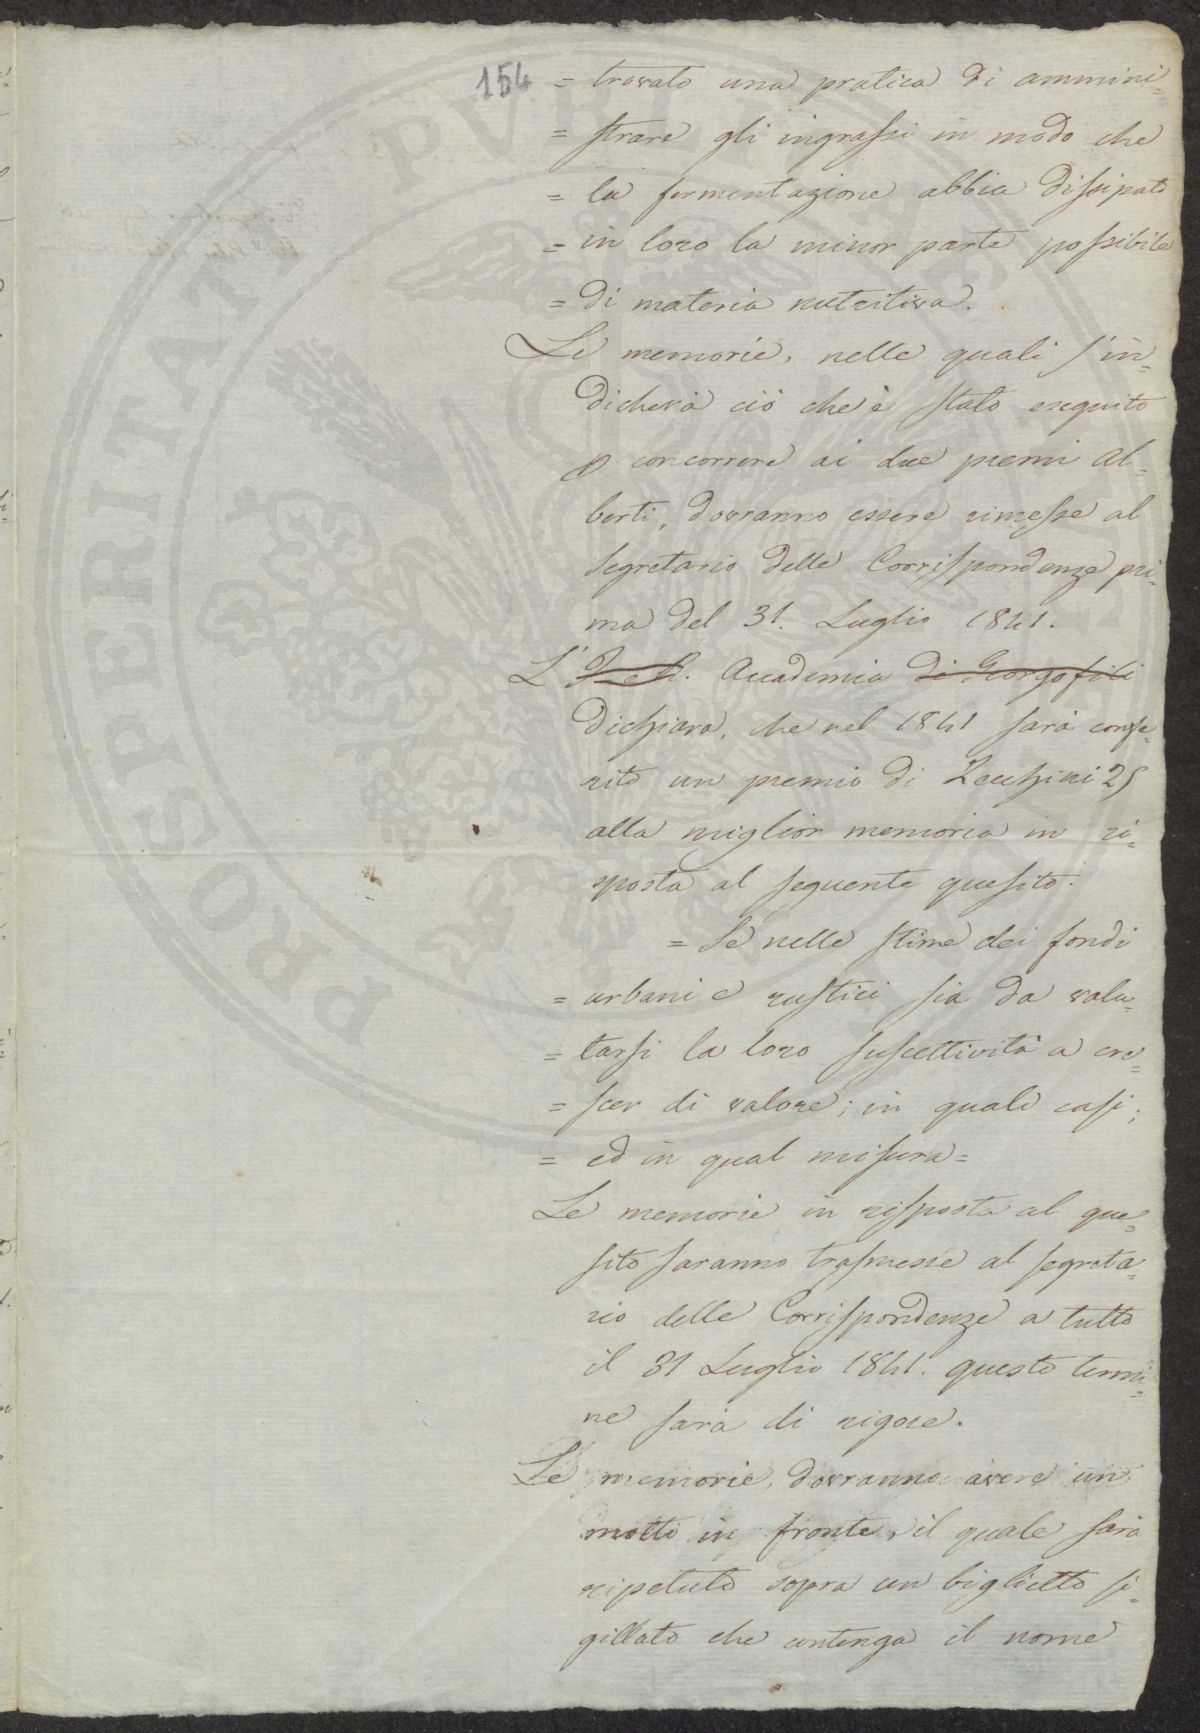 154
= trovato una pratica di ammini=
= strare gli ingrassi in modo che
= la fermentazione abbia dissipato
= in loro la minor parte possibile
= di materia nutritiva.
Le memorie, nelle quali s'in=
dicherà ciò che è stato eseguito
concorrere ai due premi Al=
berti, dovranno essere rimesse al
Segretario delle Corrispondenze pri=
ma del 31. Luglio 1841.
L' I. e R. Accademia di Georgofili
dichiara, che nel 1841 sarà confe=
rito un premio di Zecchini 25
alla miglior memoria in ri=
sposta al seguente quesito:
= Se nelle stime dei fondi
= urbani e rustici sia da valu=
= tarsi la loro suscettività a cre=
= scer di valore; in quali casi;
= ed in qual misura =
Le memorie in risposta al que=
sito saranno trasmesse al segreta=
rio delle Corrispondenze a tutto
il 31 Luglio 1841. questo termi=
ne sarà di rigore.
Le memorie, dovranno avere un
motto in fronte, il quale sarà
ripetuto sopra un biglietto si=
gillato che contenga il nome
PROSPERITATI PVBLICAE